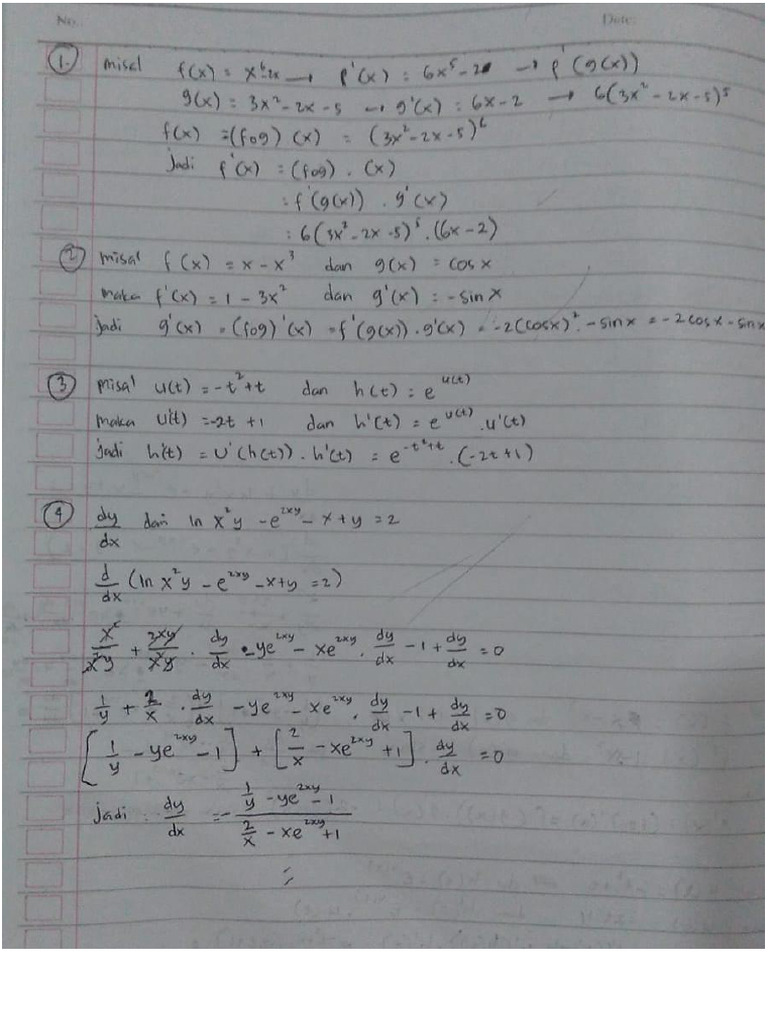 No.
Date:
① misal f(x) = x⁶-2x → f'(x) : 6x⁵ - 2 → f'(g(x))
g(x) = 3x² - 2x - 5 → g'(x) : 6x - 2 → 6(3x² - 2x - 5)⁵
f(x) = (fog) (x) = (3x² - 2x - 5)⁶
jadi f'(x) = (fog) . (x)
= f'(g(x)) . g'(x)
: 6(3x² - 2x - 5)⁵ . (6x - 2)
② misal f(x) = x - x³ dan g(x) = cos x
maka f'(x) = 1 - 3x² dan g'(x) : - sin x
jadi g'(x) = (fog)'(x) = f'(g(x)) . g'(x) = -2(cosx)² . - sinx = -2 cosx - sinx
③ misal u(t) = -t² + t dan h(t) : e^u(t)
maka u'(t) = -2t + 1 dan h'(t) = e^u(t) . u'(t)
jadi h'(t) = u'(h(t)) . h'(t) = e^-t²+t . (-2t + 1)
④ dy/dx dari ln x²y - e^2xy - x + y = 2
d/dx (ln x²y - e^2xy - x + y = 2)
x²/x²y + 2xy/x²y . dy/dx - ye^2xy - xe^2xy . dy/dx - 1 + dy/dx = 0
1/y + 2/x . dy/dx - ye^2xy - xe^2xy . dy/dx - 1 + dy/dx = 0
[1/y - ye^2xy - 1] + [2/x - xe^2xy + 1] . dy/dx = 0
jadi : dy/dx = - (1/y - ye^2xy - 1)/(2/x - xe^2xy + 1)